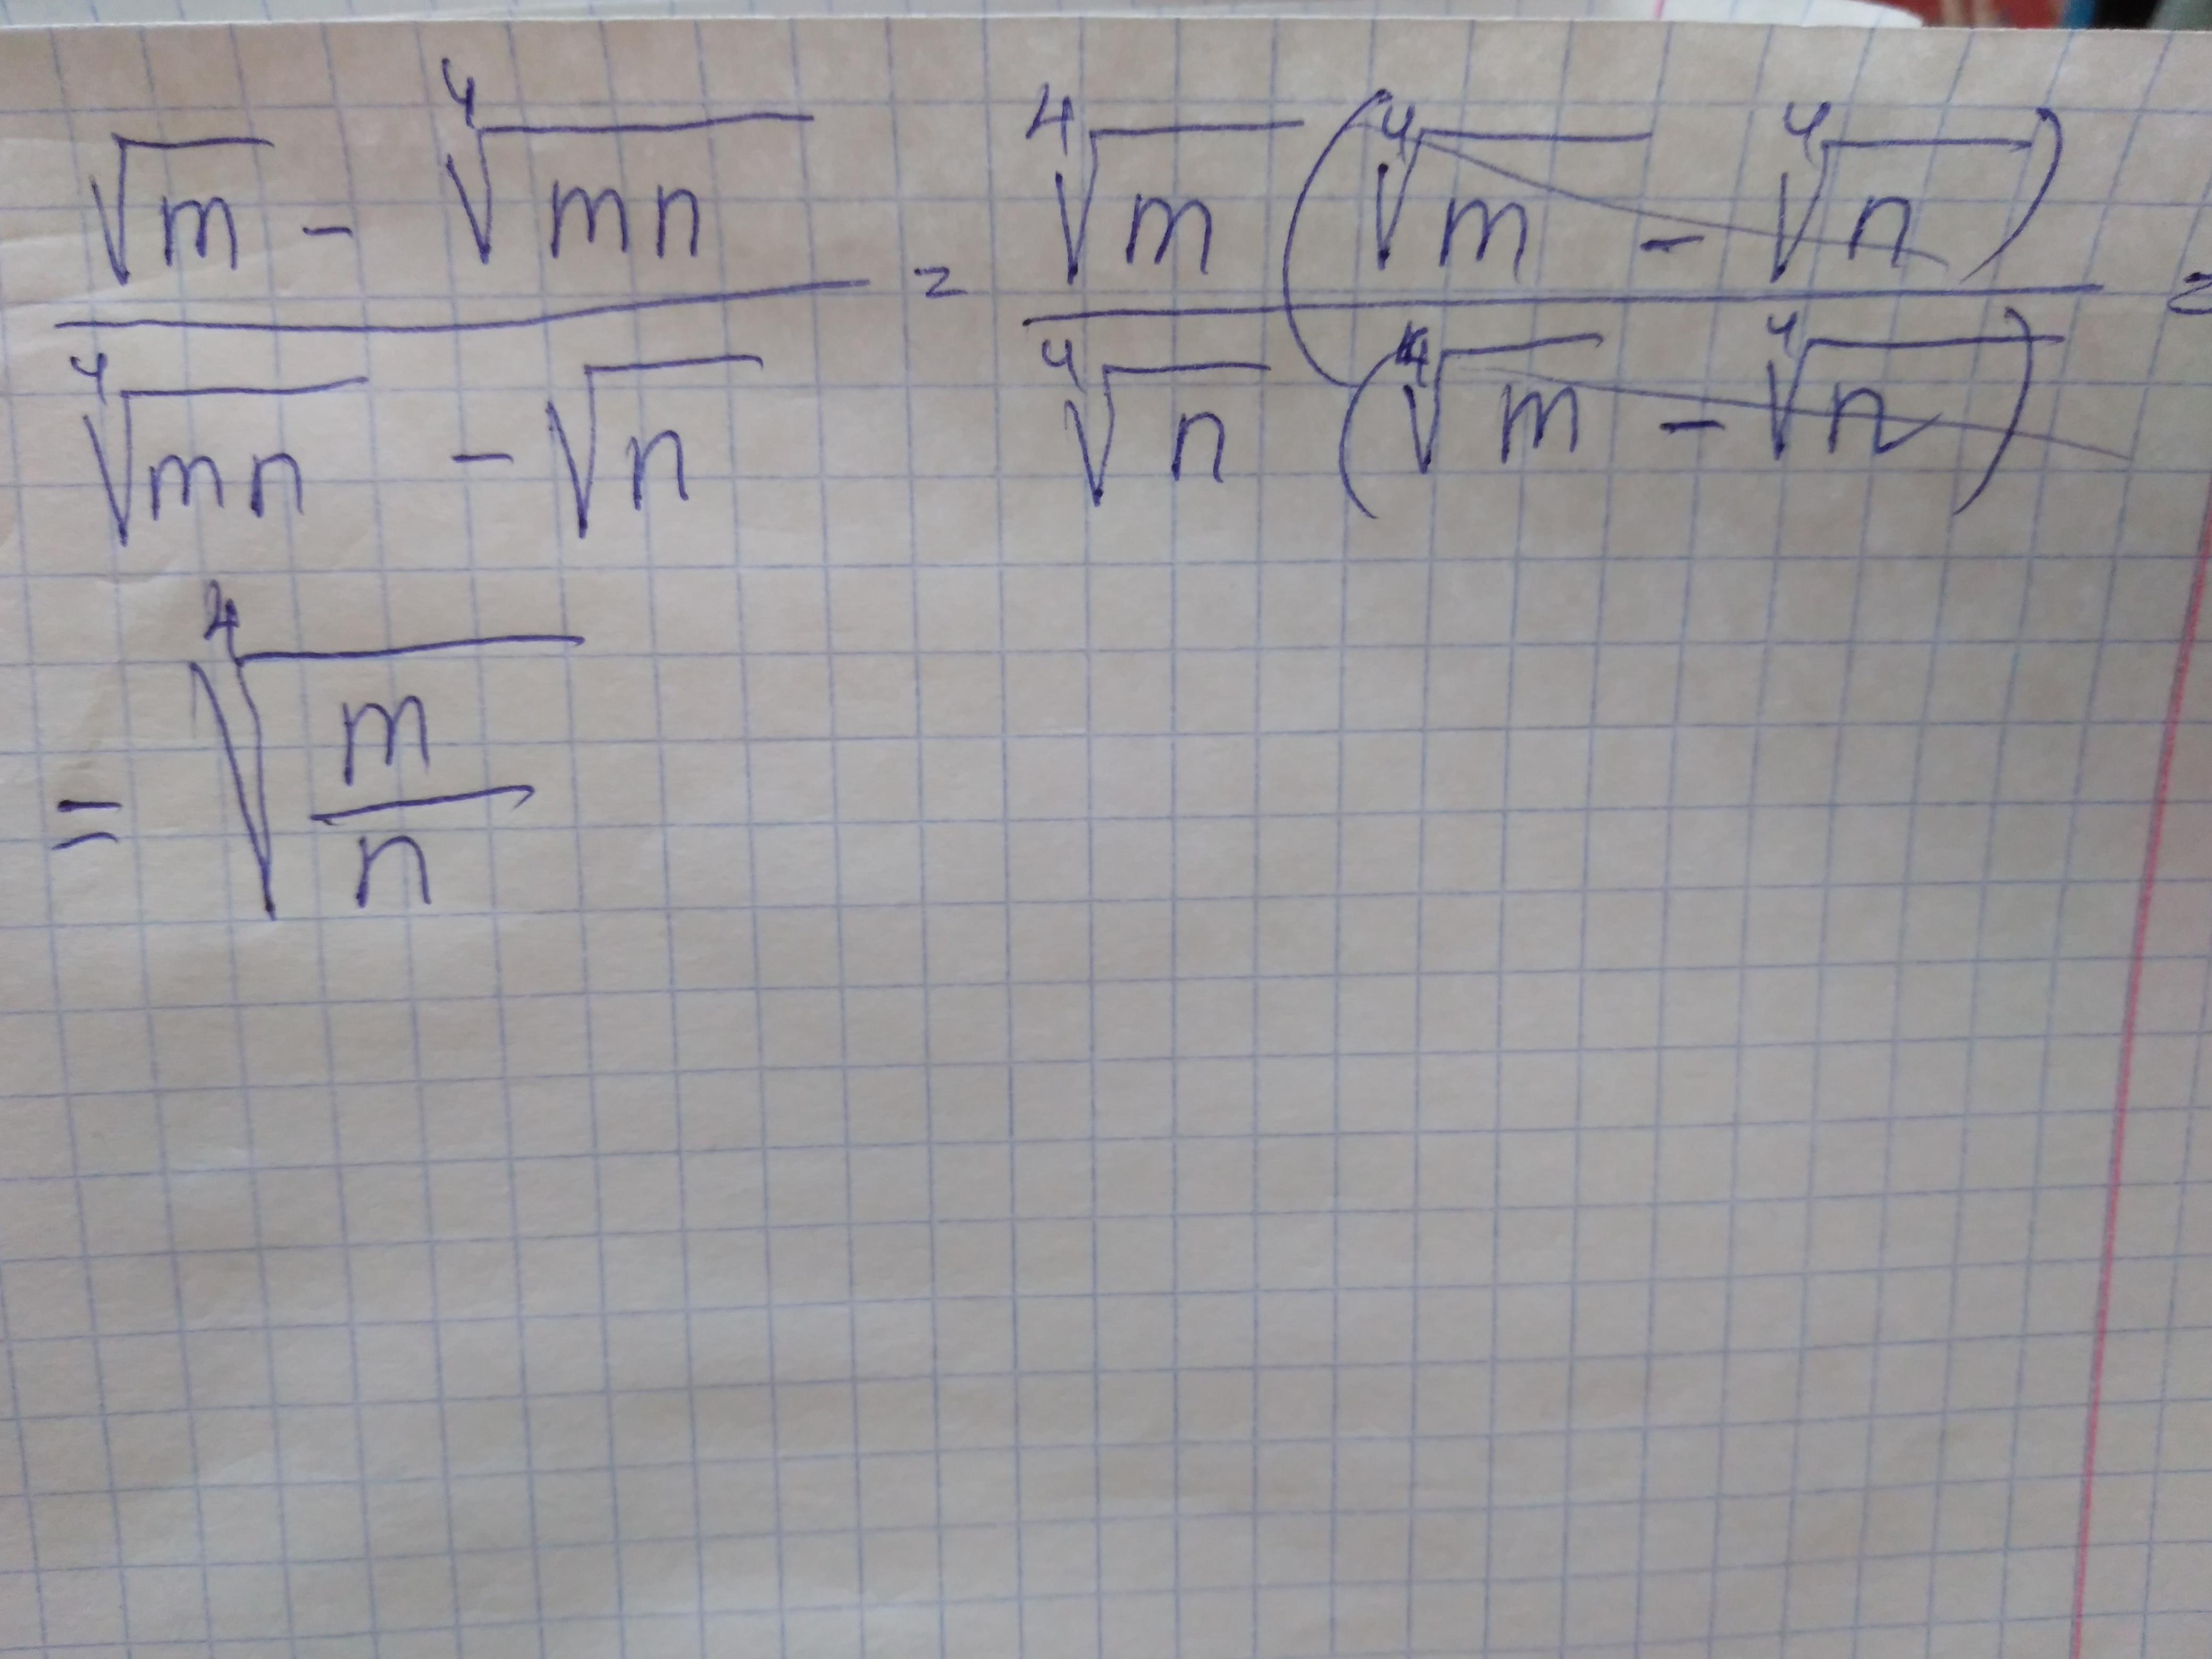 \frac{\sqrt{m} - \sqrt[4]{mn}}{\sqrt[4]{mn} - \sqrt{n}} = \frac{\sqrt[4]{m} (\sqrt[4]{m} - \sqrt[4]{n})}{\sqrt[4]{n} (\sqrt[4]{m} - \sqrt[4]{n})} =
= \sqrt[4]{\frac{m}{n}}